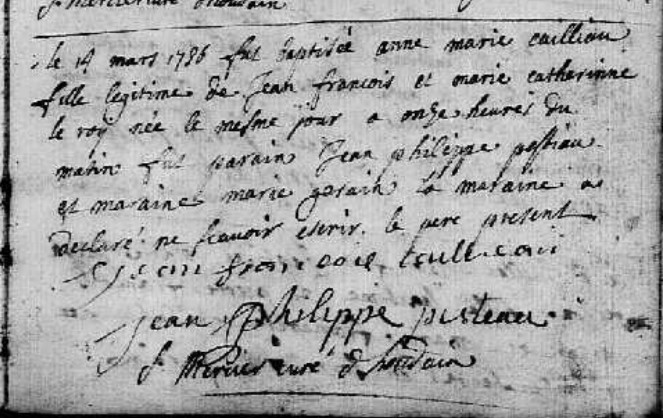 curé d'houdain
le 14 mars 1786 fut baptisée anne marie cailliau
fille legitime de Jean francois et marie catherinne
le roy née le mesme jour a onze heures du
matin fut parain Jean philippe postiau
et maraine marie gorain la maraine a
declaré ne scavoir escrir. le pere present
Jean francois
Jean philippe
curé d'houdain